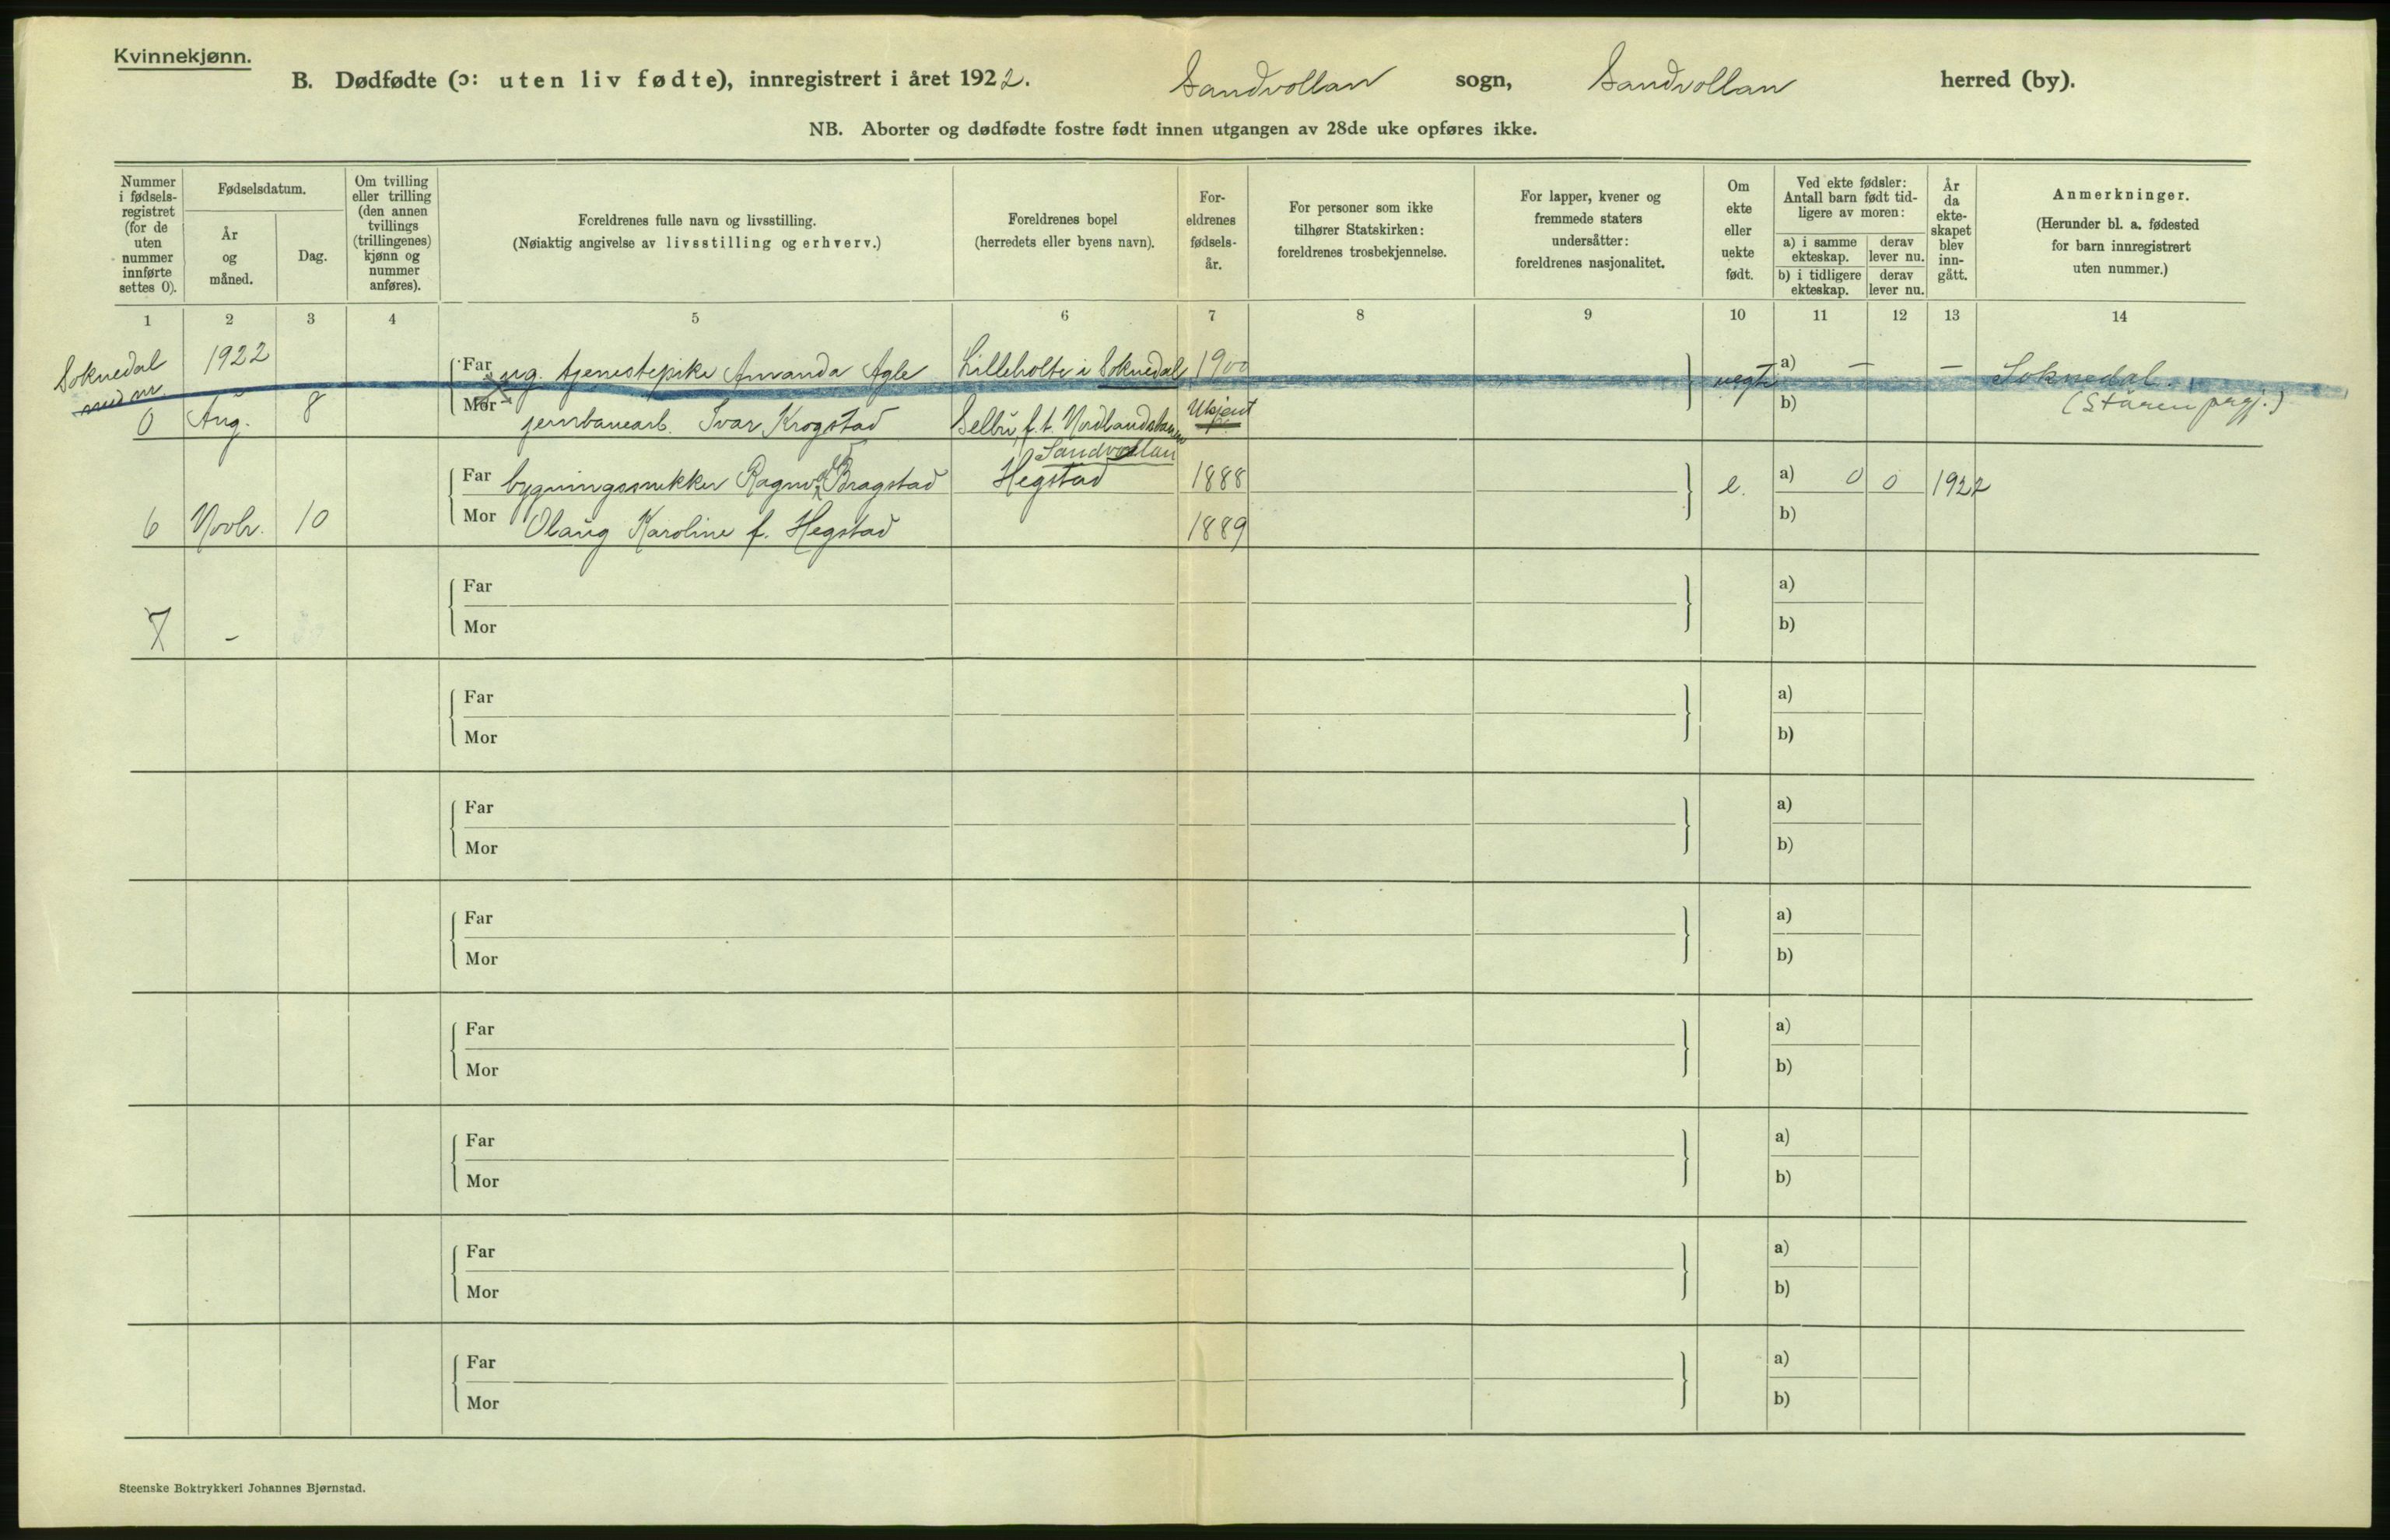 Kvinnekjønn.
B. Dødfødte (ɔ: uten liv fødte), innregistrert i året 1922. Sandvollan sogn, Sandvollan herred (by).
NB. Aborter og dødfødte fostre født innen utgangen av 28de uke opføres ikke.
Nummer i fødsels-registret (for de uten nummer innførte settes 0).
Fødselsdatum.
År og måned.
Dag.
Om tvilling eller trilling (den annen tvillings (trillingenes) kjønn og nummer anføres).
Foreldrenes fulle navn og livsstilling.
(Nøiaktig angivelse av livsstilling og erhverv.)
Foreldrenes bopel
(herredets eller byens navn).
For-eldrenes fødsels-år.
For personer som ikke tilhører Statskirken: foreldrenes trosbekjennelse.
For lapper, kvener og fremmede staters undersåtter: foreldrenes nasjonalitet.
Om ekte eller uekte født.
Ved ekte fødsler: Antall barn født tid-ligere av moren:
a) i samme ekteskap.
derav lever nu.
b) i tidligere ekteskap.
derav lever nu.
År da ekte-skapet blev inn-gått.
Anmerkninger.
(Herunder bl. a. fødested for barn innregistrert uten nummer.)
1 2 3 4 5 6 7 8 9 10 11 12 13 14
Soknedal 1922 Far ug. tjenestepike Amanda Agle Lilleholte i Soknedal 1900 uegte a) — — Soknedal.
0 Aug. 8 Mor jernbanearb. Ivar Krogstad Selbu, f. t. Nordlandsbanen Ukjent b) (Støren prgj.)
Sandvollan
Far bygningssnekker Ragnv. Bragstad Hegstad 1888 e. a) 0 0 1922
6 Novbr. 10 Mor Olaug Karoline f. Hegstad 1889 b)
Far a)
7 - Mor b)
Far a)
Mor b)
Far a)
Mor b)
Far a)
Mor b)
Far a)
Mor b)
Far a)
Mor b)
Far a)
Mor b)
Far a)
Mor b)
Steenske Boktrykkeri Johannes Bjørnstad.